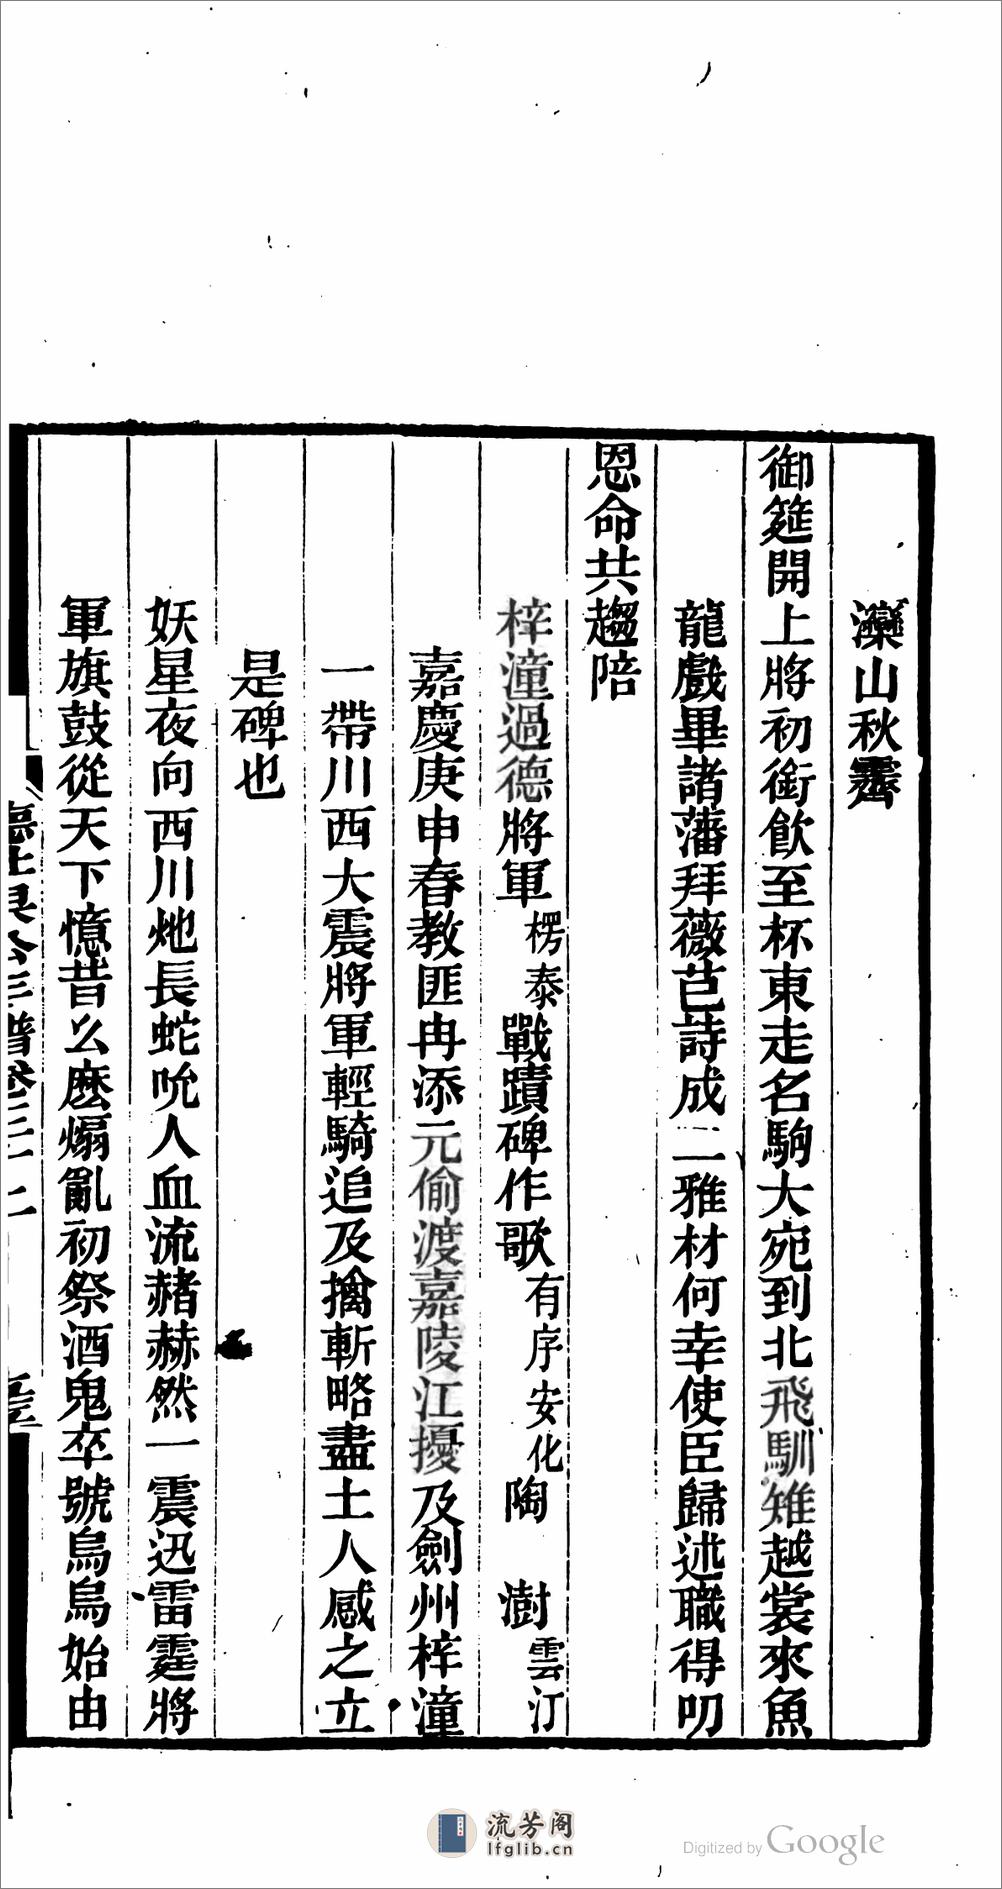 灤山秋霽
御筵開上將初銜飲至杯東走名駒大宛到北飛馴雉越裳來魚
龍戲畢諸藩拜薇芑詩成二雅材何幸使臣歸述職得叨
恩命共趨陪
梓潼過德將軍楞泰戰蹟碑作歌有序安化陶 澍雲汀
嘉慶庚申春教匪冉添元偷渡嘉陵江擾及劍州梓潼
一帶川西大震將軍輕騎追及擒斬略盡土人感之立
是碑也
妖星夜向西川灺長蛇吮人血流赭赫然一震迅雷霆將
軍旗鼓從天下憶昔幺麽煽亂初祭酒鬼卒號烏烏始由
流芳阁
lfglib.cn
Digitized by Google